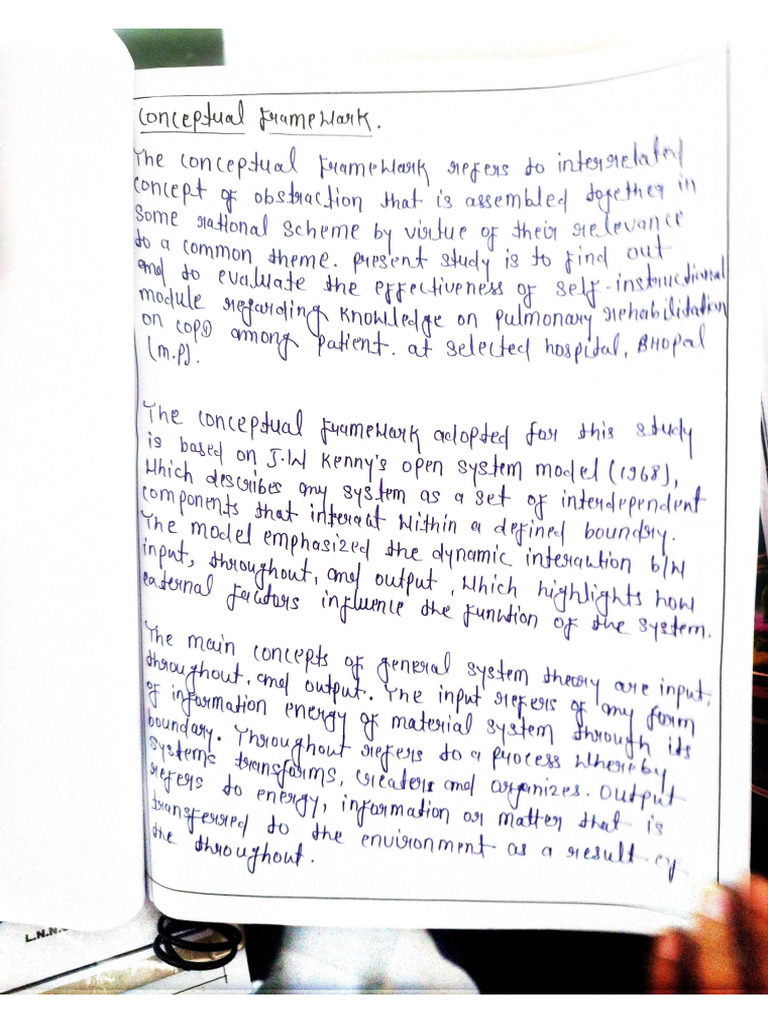 Conceptual Framework.
The conceptual framework refers to interrelated
concept of obstraction that is assembled together in
some rational scheme by virtue of their relevance
to a common theme. present study is to find out
and to evaluate the effectiveness of self-instructional
module regarding knowledge on pulmonary rehabilitation
on COPD among patient. at selected hospital, BHopal
(m.p).
The conceptual framework adopted for this study
is based on J.W Kenny's open system model (1968),
which describes any system as a set of interdependent
components that interact within a defined boundry.
The model emphasized the dynamic interaution b/w
input, throughout, and output, which highlights how
eaternal factors influence the funution of the system.
The main concepts of general system theory are input,
throughout, and output. The input refers of any form
of information energy of material system through its
boundary. Throughout refers to a process whereby
systems transforms, creaters and organizes. output
refers to energy, information or matter that is
transferred to the environment as a result of
the throughout.
L.N.N.